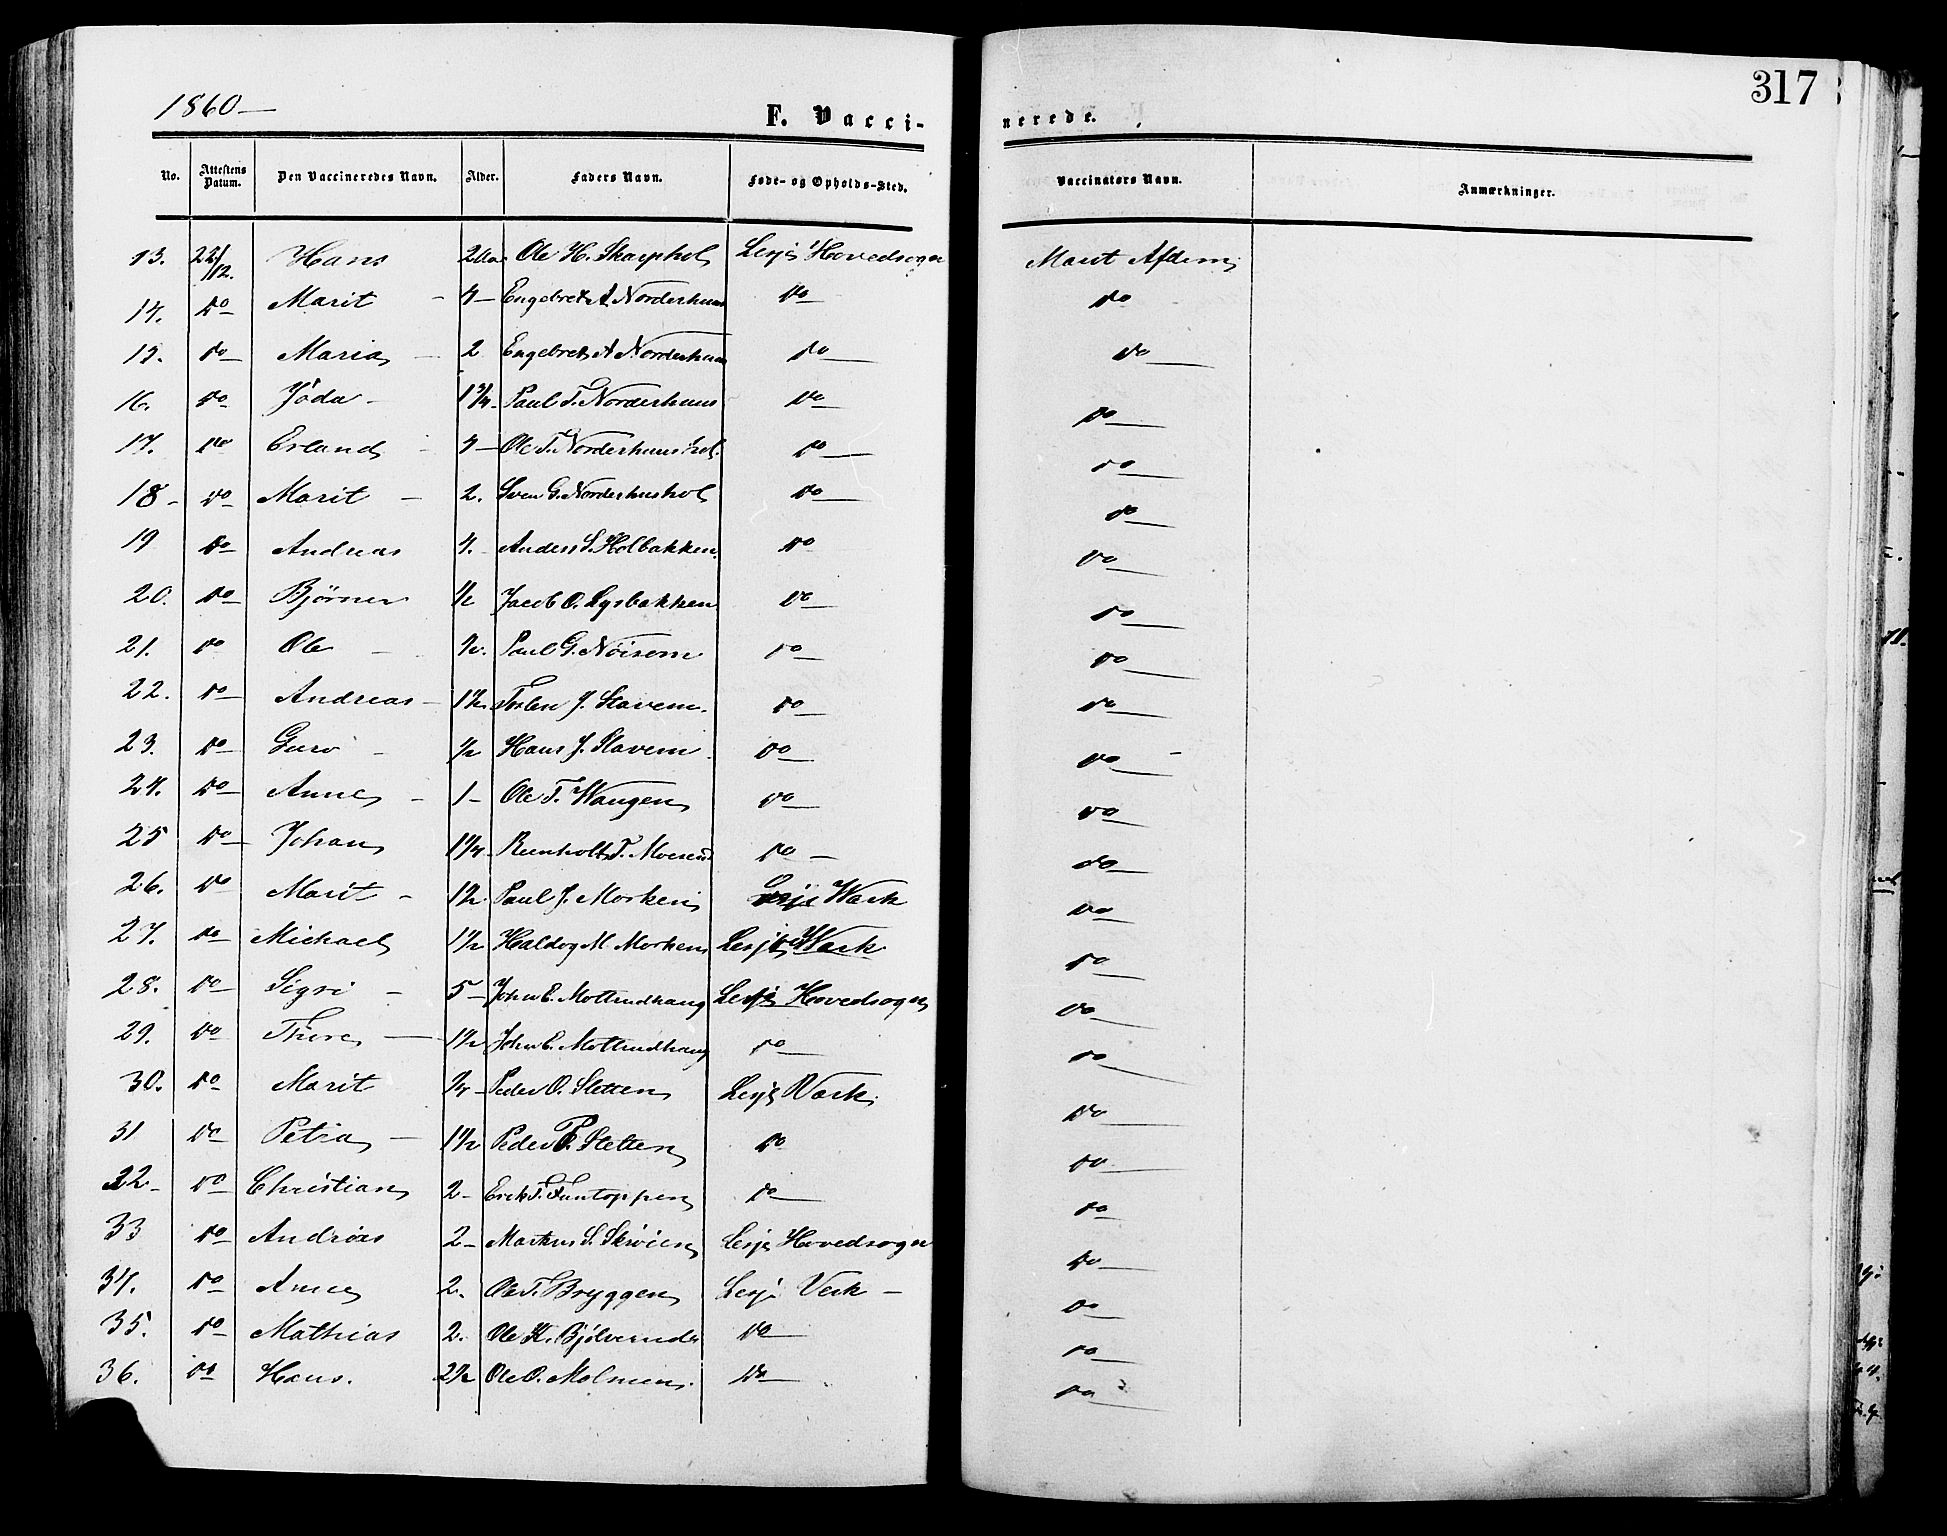 317
1860 —
F. Vacci-nerede.
No. Attestens Datum. Den Vaccineredes Navn. Alder. Faders Navn. Føde- og Opholds-Sted. Vaccinators Navn. Anmærkninger.
13. 22/12. Hans Ole H. Lesje Hovedsogn Marit
14. do Marit 4 — Engebret A. Norderhuus do do
15. do Maria 2 Engebret A. Norderhuus do do
16. do Jøda 1 3/4 Paul T. Norderhuus do do
17. do Erland 4 — Ole T. Norderhuushol. do do
18 - do Marit — 2. Sven G. Norderhushol do do
19 do Andreas 4. Anders S. Holbakken. do do
20. do Bjørner 1/2 Jacob O. Lysbakken do do
21. do Ole — 1/2. Paul G. Nøisom do do
22. do Andreas — 1 1/2. J. Stavem. do do
23. do Guro - 1/2 Hans J. Stavem do do
24. do Anne — 1 - Ole T. Waugen do do
25 do Johan 1 1/4 - Reinholt T. do — do
26. do Marit - 1 1/2. Paul J. Morken Lesje Wærk do
27. do Michael 1 1/2 Haldog M. Morken Lesje Wærk do
28. do Sigri - 5 - John E. Lesje Hovedsogn do
29. do Thore — 1 1/2 John E. do do
30. do Marit Peder O. Sletten Lesje Værk. do
31 do Petra — 1 1/2 Peder Sletten do do
32 - do Christian 2 - Erik T. do do
33 do Andreas 2 - Markus S. Skrøien Lesje Hovedsogn do
34. do Anne 2. Ole T. Bryggen Lesje Verk — do
35. do Mathias 2. Ole K. do do
36. do Hans. 2 1/2 Ole O. Molmen. do do